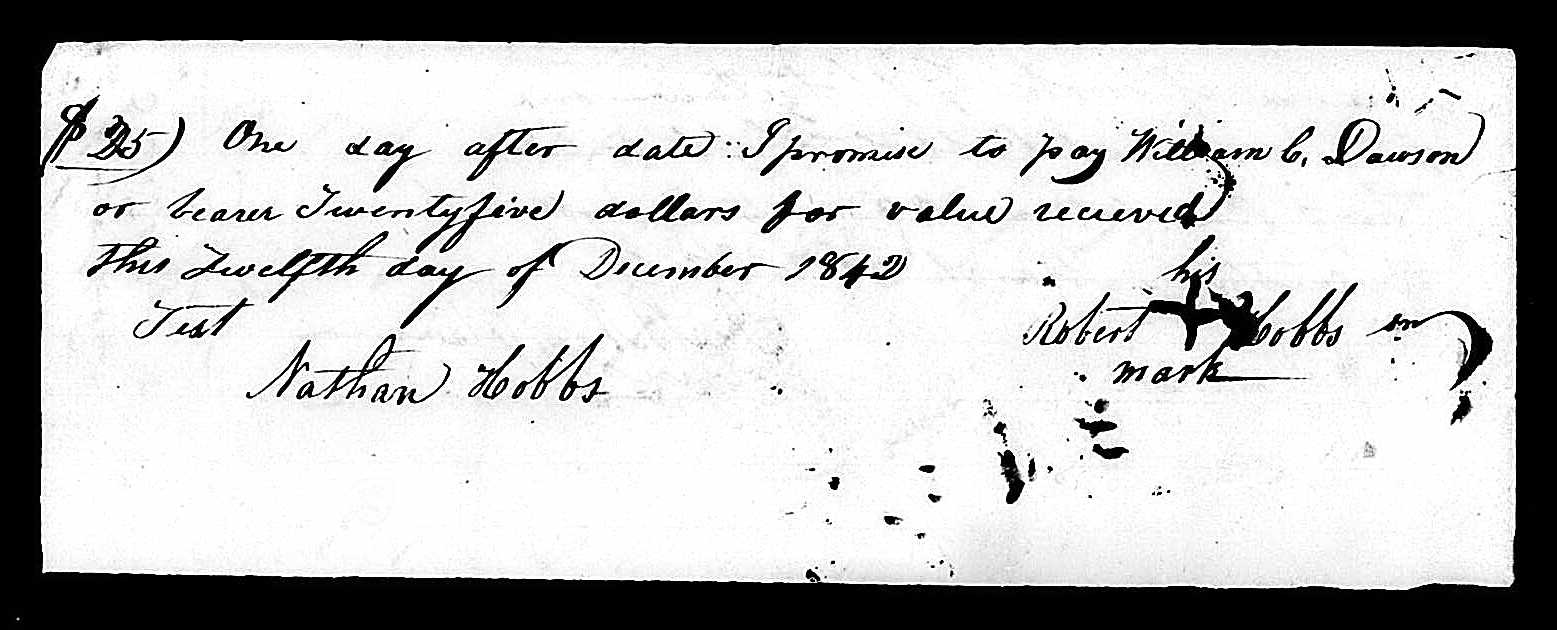 $25) One day after date I promise to pay William C. Dawson
or bearer Twentyfive dollars for value recieved
this Twelfth day of December 1842
his
Test Robert + Hobbs sn
mark
Nathan Hobbs